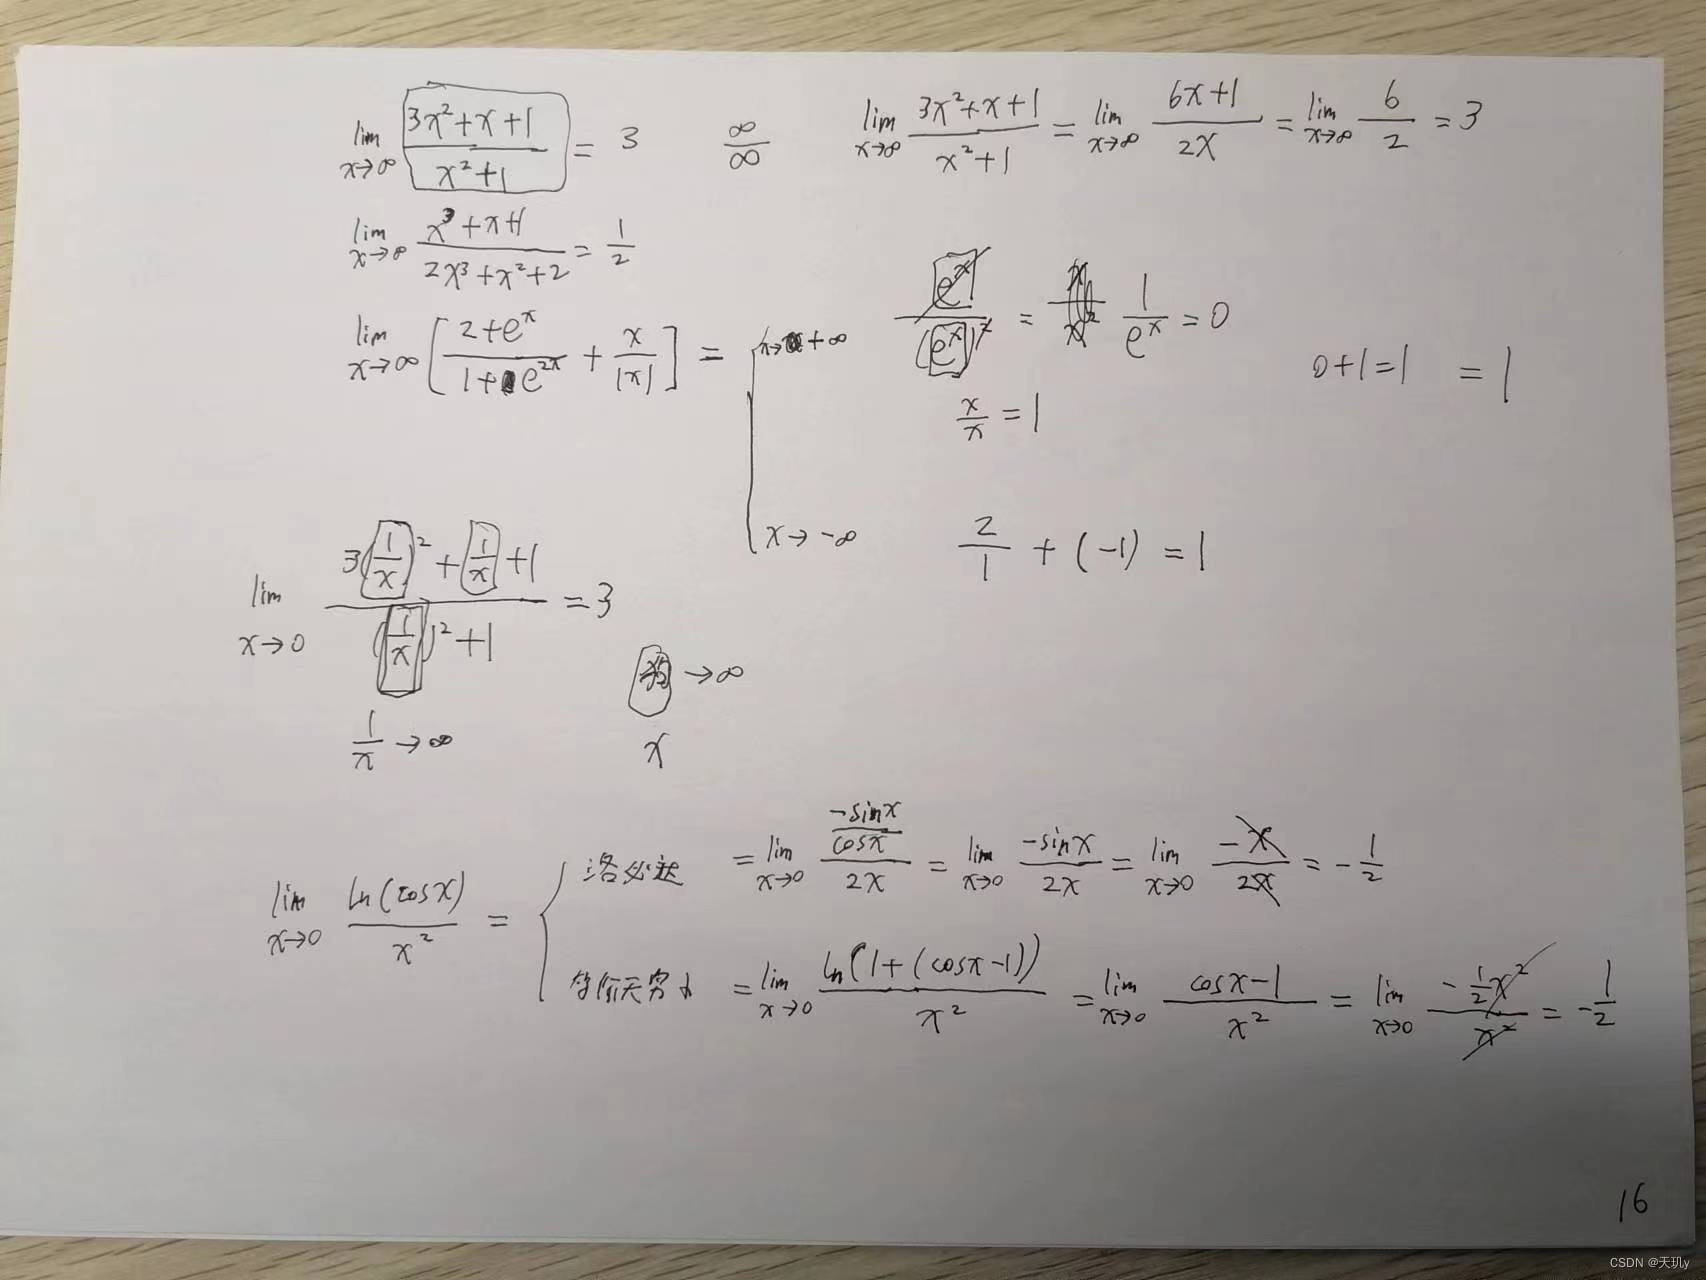 lim x→∞ (3x²+x+1)/(x²+1) = 3    ∞/∞    lim x→∞ (3x²+x+1)/(x²+1) = lim x→∞ (6x+1)/(2x) = lim x→∞ 6/2 = 3
lim x→∞ (x³+x+1)/(2x³+x²+2) = 1/2
lim x→∞ [(2+eˣ)/(1+e²ˣ) + x/|x|] = { x→+∞    eˣ/(eˣ)² = 1/eˣ = 0    0+1=1    =1
x/x = 1
x→-∞    2/1 + (-1) = 1
lim x→0 (3(1/x)²+1/x+1)/((1/x)²+1) = 3
→∞
1/x→∞    x
lim x→0 ln(cosx)/x² = { 洛必达 = lim x→0 (-sinx/cosx)/(2x) = lim x→0 -sinx/2x = lim x→0 -x/2x = -1/2
等价无穷小 = lim x→0 ln(1+(cosx-1))/x² = lim x→0 (cosx-1)/x² = lim x→0 (-1/2x²)/x² = -1/2
16
CSDN @天玑y